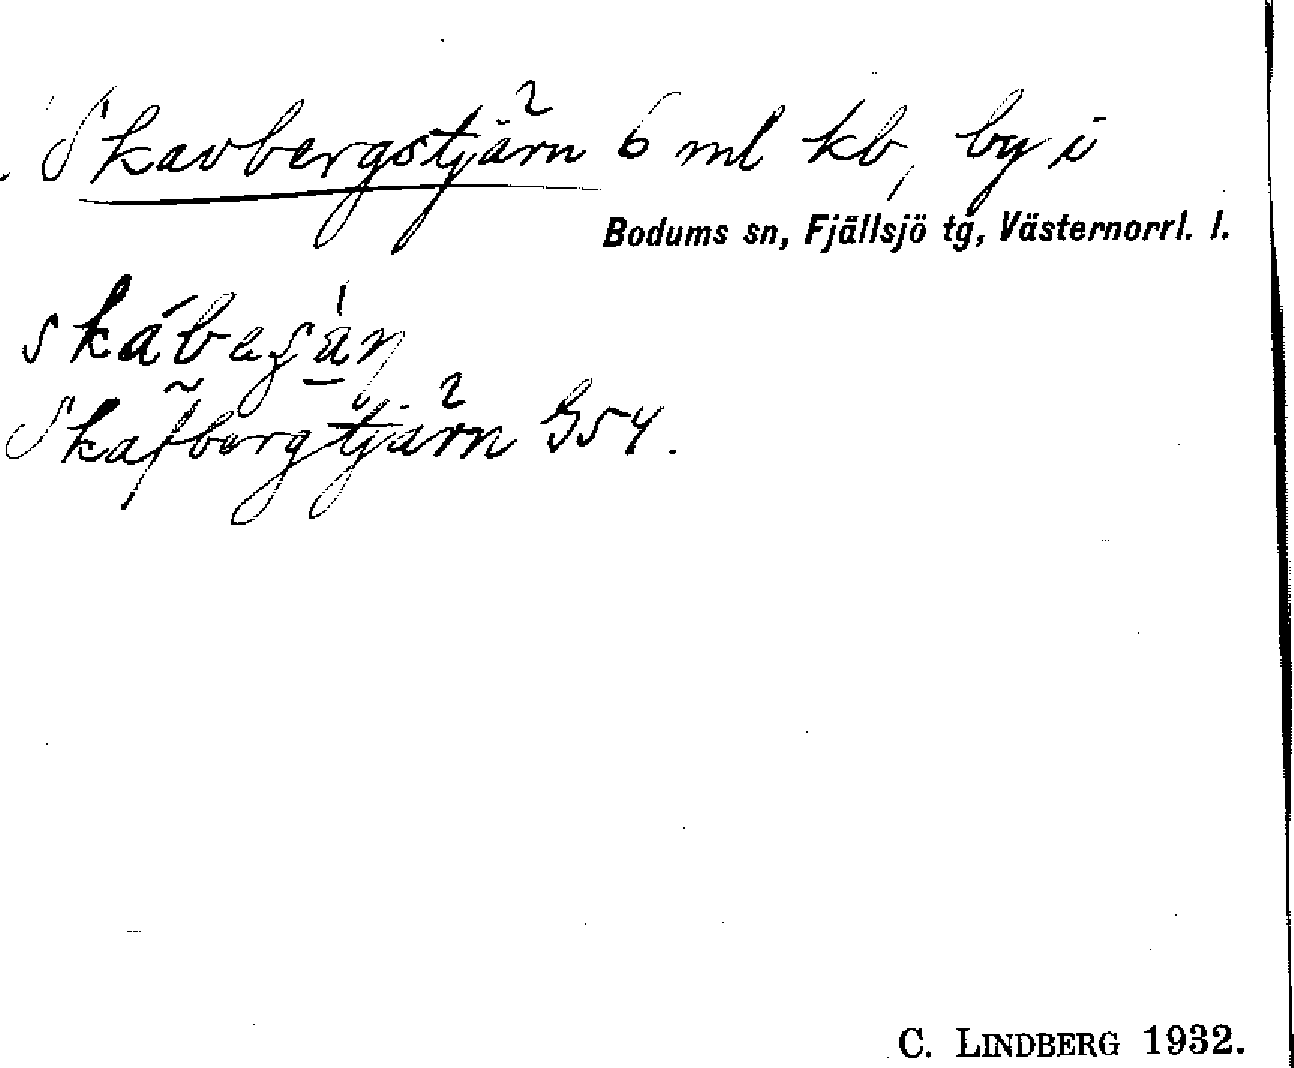 Skavbergstjärn 6 ml kb, by i
Bodums sn, Fjällsjö tg, Västernorrl. l.
Skafbergtjärn G54.
C. LINDBERG 1932.